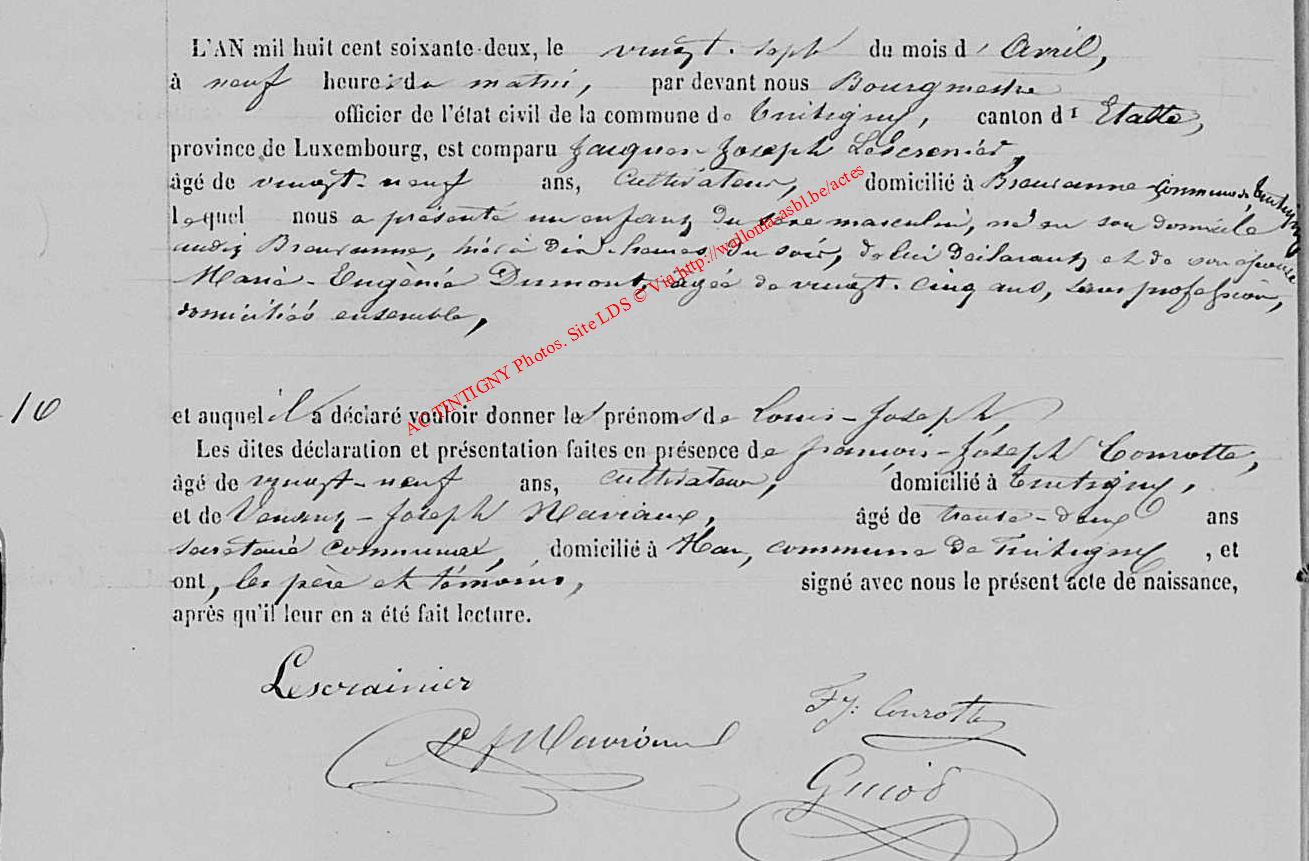 L'AN mil huit cent soixante-deux, le vingt-sept du mois d'Avril,
à neuf heures du matin, par devant nous Bourgmestre
officier de l'état civil de la commune de Tintigny, canton d'Etalle,
province de Luxembourg, est comparu Jacques Joseph Lescrenier,
âgé de vingt-neuf ans, cultivateur, domicilié à commune de Tintigny
lequel nous a présenté un enfant du sexe masculin, né en son domicile
audit hier à dix heures du soir, de lui déclarant et de son épouse
Marie-Eugénie Dumont, âgée de vingt-cinq ans, sans profession,
domiciliés ensemble,
16
et auquel il a déclaré vouloir donner les prénoms de Louis-Joseph,
Les dites déclaration et présentation faites en présence de françois-Joseph Conrotte,
âgé de vingt-neuf ans, cultivateur, domicilié à Tintigny,
et de Joseph âgé de trente-deux ans
secrétaire communal, domicilié à Han, commune de Tintigny, et
ont, les père et témoins, signé avec nous le présent acte de naissance,
après qu'il leur en a été fait lecture.
Lescrainier
F.J. Conrotte
Guiot
ACTINTIGNY Photos. Site LDS © Via http://wallonia-asbl.be/actes